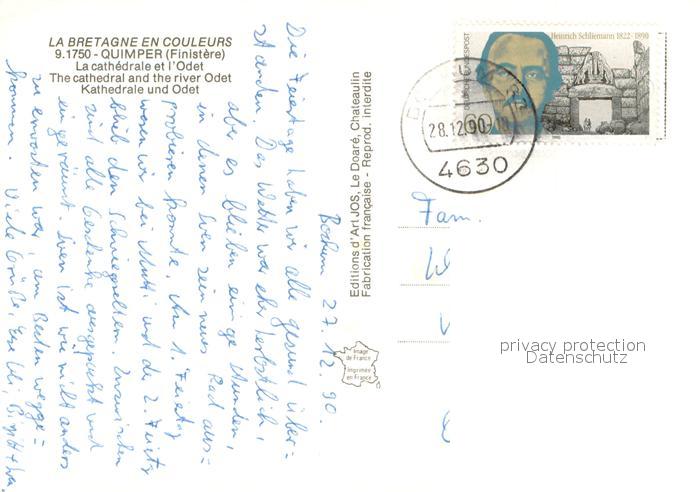 LA BRETAGNE EN COULEURS
9.1750 - QUIMPER (Finistère)
La cathédrale et l'Odet
The cathedral and the river Odet
Kathedrale und Odet
Bochum 27.12.90.
Die Feiertage haben wir alle gesund über-
standen. Das Wetter war eher herbstlich,
aber es blieben einige Stunden,
in denen Sven sein neues Rad aus-
probieren konnte. Am 1. Feiertag
waren wir bei Mutti und der 2. Feiertg
blieb den Schwiegereltern. Inzwischen
sind alle Geschenke ausgepackt und
eingeräumt. Sven ist wie nicht anders
zu erwarten war, am Besten wegge-
kommen. Viele Grüße, Eure Uli, Birgit +
Editions d'Art JOS, Le Doaré, Chateaulin
Fabrication française - Reprod. interdite
Image de France
Imprimée en France
Heinrich Schliemann 1822-1890
DEUTSCHE BUNDESPOST
60
28.12.90
4630
Fam.
W
privacy protection
Datenschutz